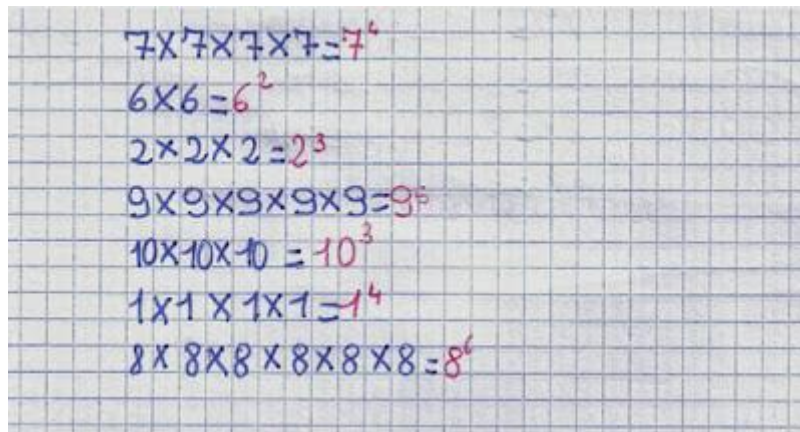 7×7×7×7=7⁴
6×6=6²
2×2×2=2³
9×9×9×9×9=9⁵
10×10×10=10³
1×1×1×1=1⁴
8×8×8×8×8×8=8⁶